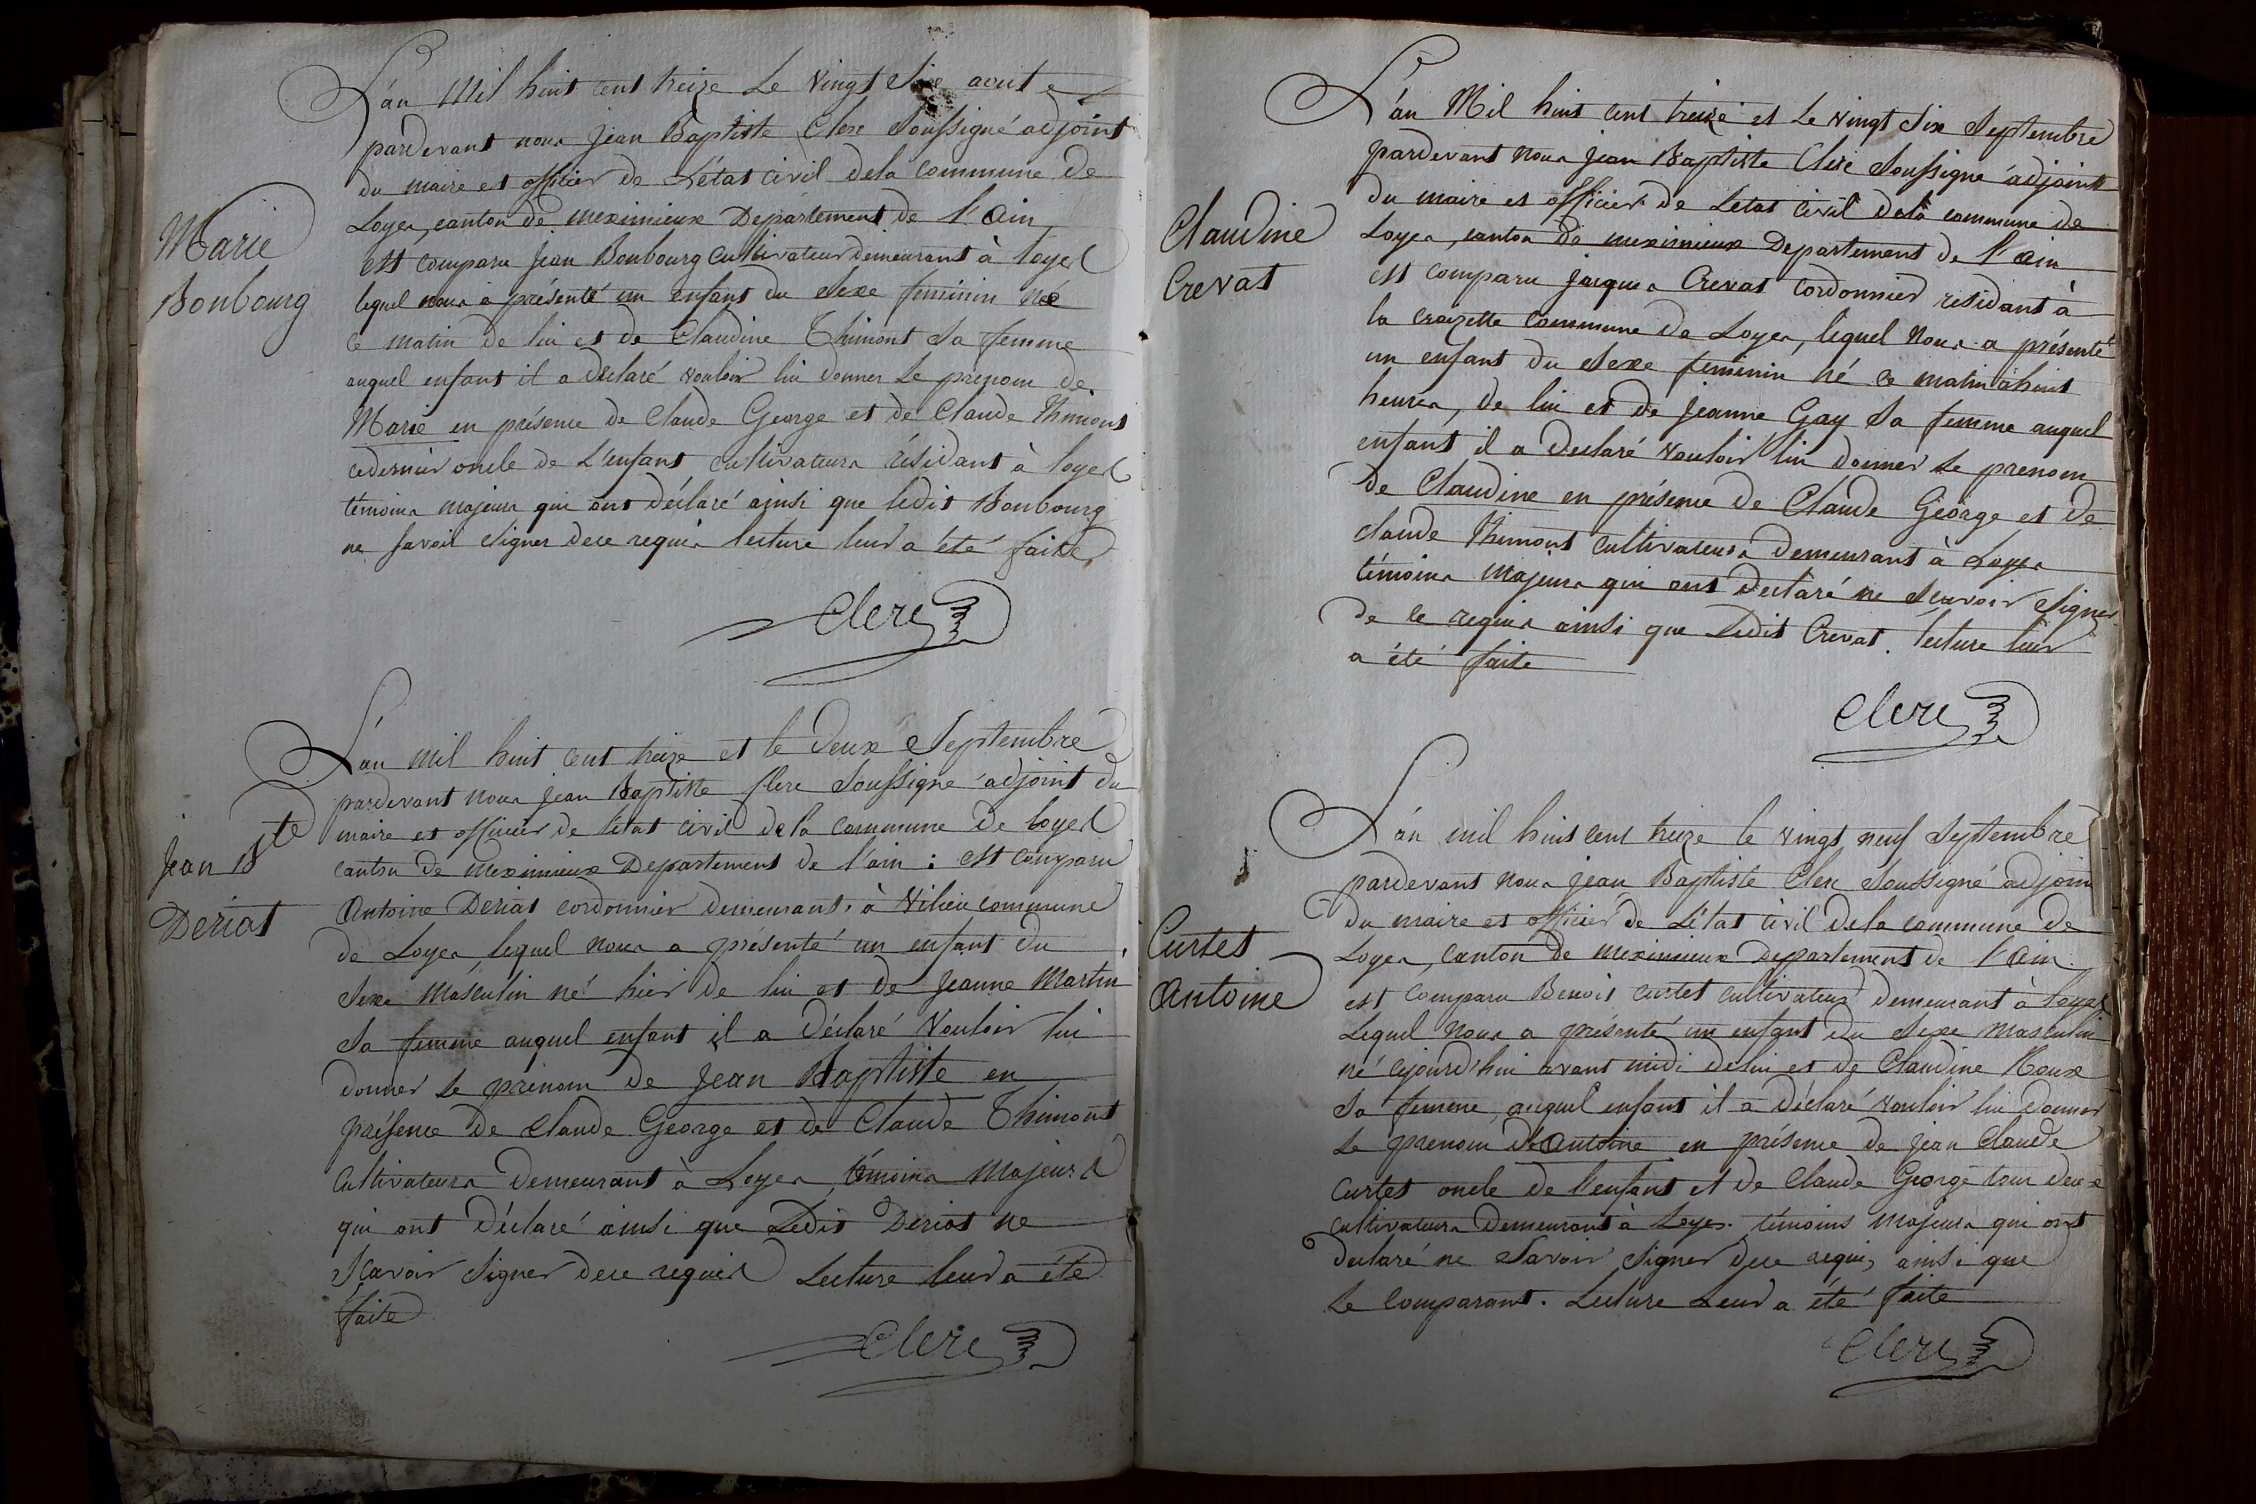 L'an Mil huit cent treize Le Vingt Six aout
pardevant nous Jean Baptiste Clerc Soussigné adjoint
du maire et officier de L'état civil dela commune de
Loyes, canton de meximieux Departement de l'ain
Marie
Bonbourg
est comparu Jean Bonbourg cultivateur demeurant à loyes
lequel nous a présenté un enfant du Sexe feminin né
ce matin de lui et de Claudine Thimont Sa femme
auquel enfant il a declaré vouloir lui donner le prenom de
Marie en présence de Claude George et de Claude Thimont
cedernier oncle de L'enfant cultivateurs résidant à loyes
témoins majeurs qui ont déclaré ainsi que ledit Bonbourg
ne savoir signer dece requis lecture leur a été faite
Clerc
L'an mil huit cent treize et le deux Septembre
pardevant nous jean Baptiste Clerc Soussigné adjoint du
maire et officier de létat civil dela commune de loyes
Jean Bte
Deriat
canton de Meximieux Departement de l'ain : est comparu
Antoine Deriat cordonnier demeurant à Vilieu commune
de Loyes, lequel nous a présenté un enfant du
Sexe Masculin né hier de lui et de Jeanne Martin
Sa femme auquel enfant il a déclaré Vouloir lui
donner le prenom de Jean Baptiste en
présence de Claude George et de Claude Thimont
Cultivateurs demeurant à Loyes, témoins Majeurs
qui ont déclaré ainsi que Ledit Deriat ne
Sçavoir Signer dece requis Lecture leur a été
faite
Clerc
L'an Mil huit cent treize et le vingt Six Septembre
pardevant nous jean Baptiste Clerc Soussigné adjoint
du maire et officier de Letat civil dela commune de
Loyes, canton de meximieux Departement de l'ain
Claudine
Crevat
est comparu jacques Crevat cordonnier residant à
la crozette commune de Loyes, lequel Nous a présenté
un enfant du Sexe feminin né ce matin à huit
heures, de lui et de Jeanne Gay Sa femme auquel
enfant il a declaré vouloir lui donner le prenom
de Claudine en présence de Claude George et de
claude Thimont cultivateurs demeurant à Loyes
témoins majeurs qui ont declaré ne Scavoir Signer
de ce requis ainsi que Ledit Crevat. lecture leur
a été faite
Clerc
L'an mil huit cent treize le vingt neuf Septembre
pardevant nous jean Baptiste Clerc Soussigné adjoin
du maire et officier de L'état civil dela commune de
Loyes, canton de meximieux Departement de l'ain
Curtet
Antoine
est comparu Benoit curtet cultivateur demeurant à loyes
Lequel Nous a présenté un enfant du Sexe masculin
né cejourd'hui avant midi delui et de Claudine Roux
Sa femme, auquel enfant il a déclaré vouloir lui donner
Le prenom de Antoine en présence de jean Claude
Curtet oncle de l'enfant et de Claude George tous deux
cultivateurs demeurant à Loyes. témoins majeurs qui ont
declaré ne Savoir Signer dece requis, ainsi que
Le comparant. Lecture Leur a été faite
Clerc